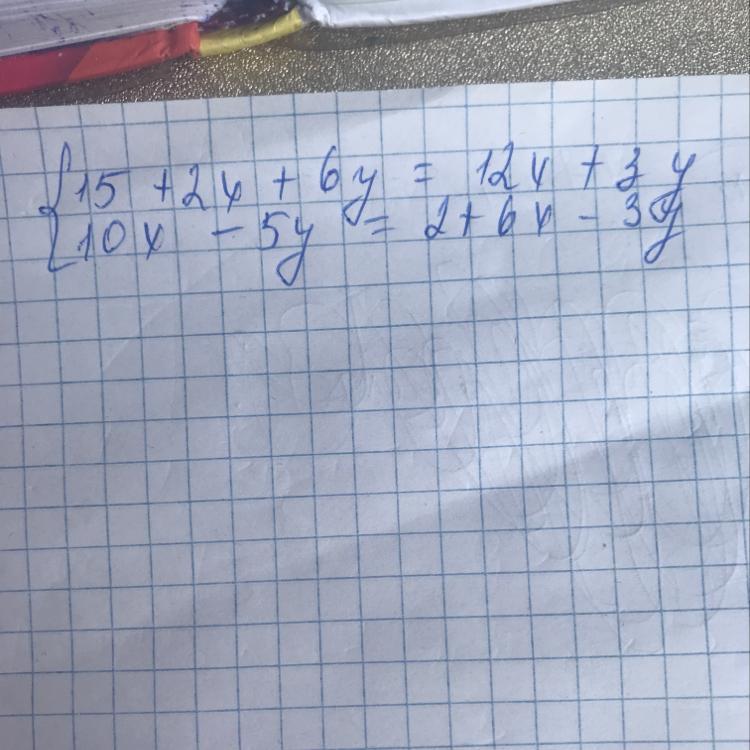 {15 + 2x + 6y = 12x + 3y
{10x - 5y = 2 + 6x - 3y